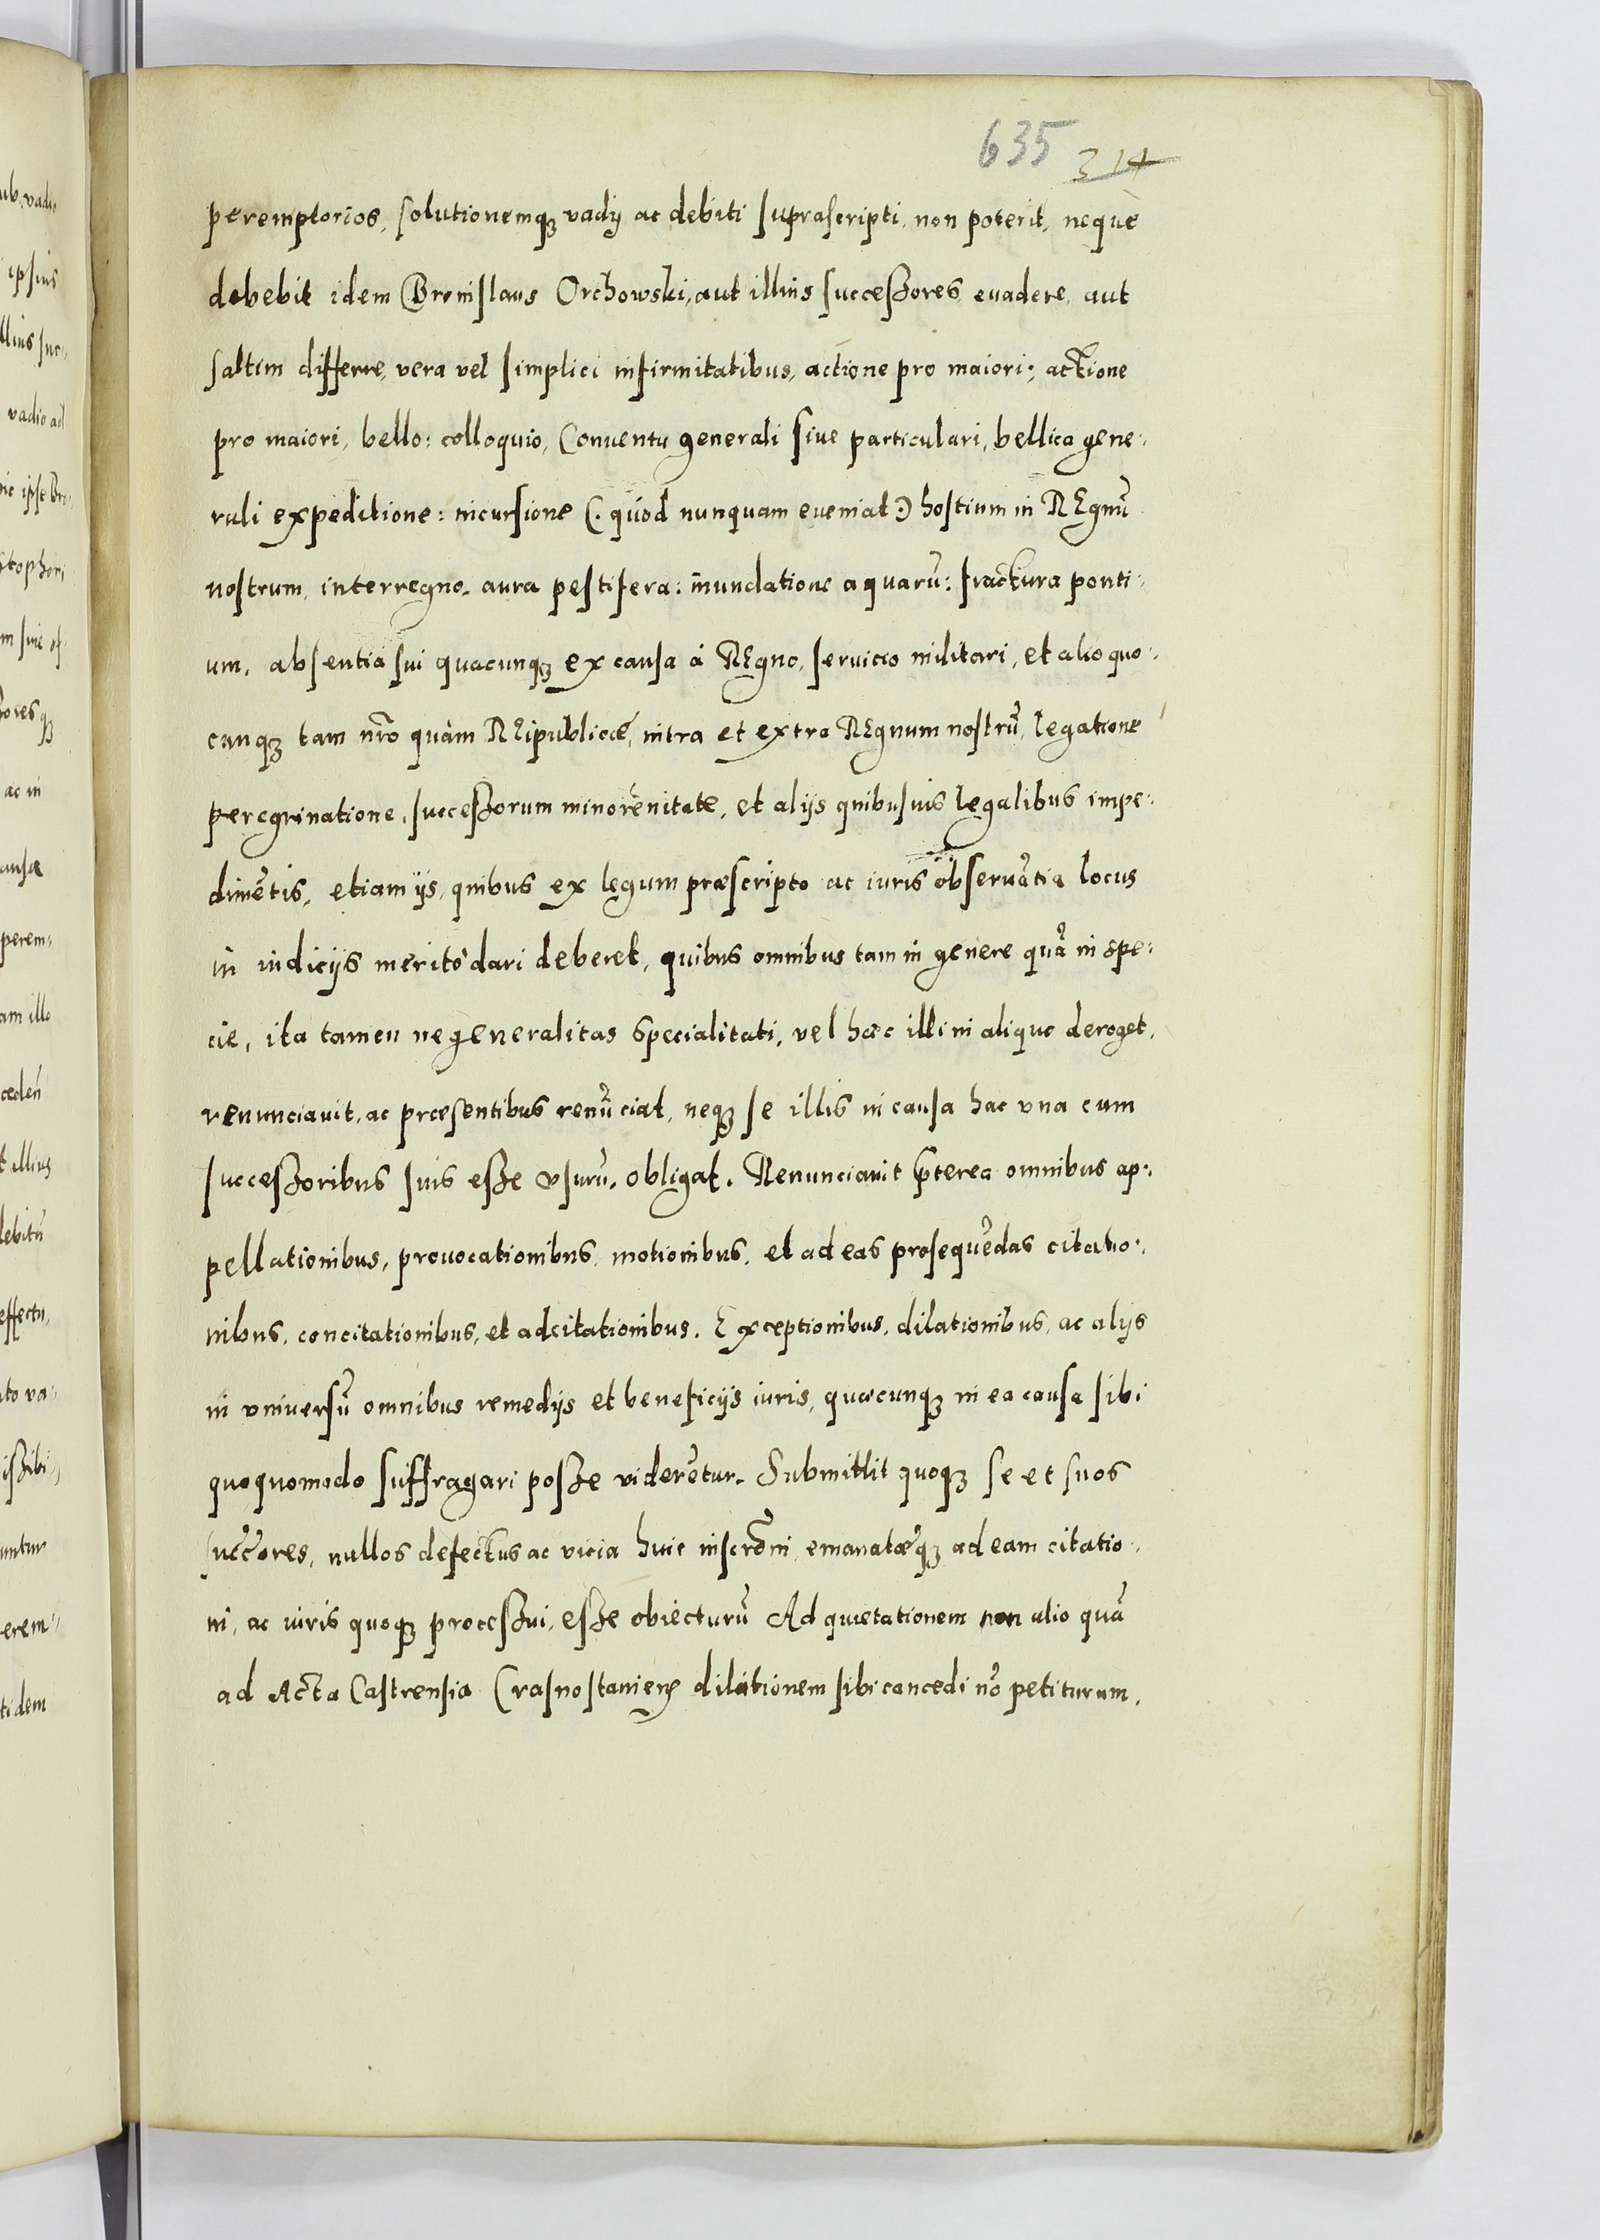 635 314
peremptorios, solutionemq; vadij ac debiti suprascripti, non poterit, neque
debebit idem Bronislaus Orchowski, aut illius successores euadere, aut
saltim differre, vera vel simplici infirmitatibus, actione pro maiori; actione
pro maiori, bello: colloquio, Conuentu generali siue particulari, bellica gene:
rali expeditione: incursione (. quod nunquam eueniat :) hostium in REgnũ
nostrum, interregno, aura pestifera: inundatione aquarũ: fractura ponti:
um, absentia sui quacunq; ex causa à REgno, seruicio militari, et alio quo:
cunq; tam nr̃o quàm REipublicæ, intra et extra REgnum nostrũ, legatione
peregrinatione, successorum minorenitate, et alijs quibusuis legalibus impe:
dimẽtis, etiam ijs, quibus ex legum præscripto ac iuris obseruãtia locus
in iudicijs meritò dari deberet, quibus omnibus tam in genere quã in spe:
cie, ita tamen ne generalitas specialitati, vel hæc illi in aliquo deroget,
renunciauit, ac præsentibus renũciat, neq; se illis in causa hac vna cum
successoribus suis esse vsurũ, obligat. Renunciauit p̃terea omnibus ap:
pellationibus, prouocationibus, motionibus, et ad eas prosequẽdas citatio:
nibus, concitationibus, et adcitationibus. Exceptionibus, dilationibus, ac alijs
in vniuersũ omnibus remedijs et beneficijs iuris, quæcunq; in ea causa sibi
quoquomodo suffragari posse viderẽtur. Submittit quoq; se et suos
succẽores, nullos defectus ac vicia huic inscrõni, emanatæq; ad eam citatio:
ni, ac iuris quoq; processui, esse obiecturũ Ad quietationem non alio quã
ad Acta Castrensia Crasnostauiens dilationem sibi concedi nõ petiturum.